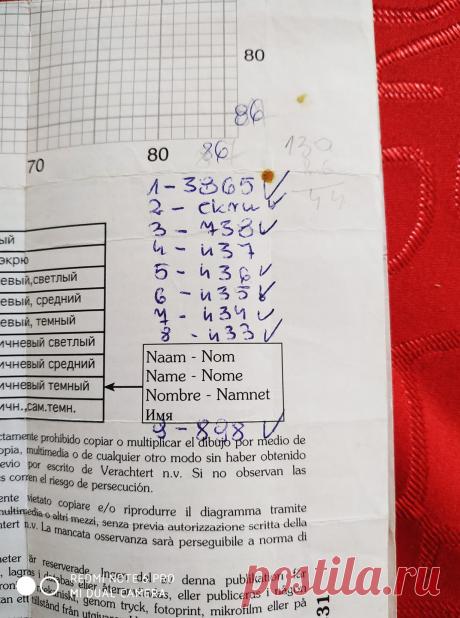 80
86
70 80 86
130
86
44
1 - 3865 ✓
2 - екги ✓
3 - 738 ✓
4 - 437
5 - 436 ✓
6 - 435 ✓
7 - 434 ✓
8 - 433 ✓
ый
экрю
евый,светлый
евый, средний
евый, темный
ичневый светлый
ичневый средний
ичневый темный
ичн.,сам.темн.
Naam - Nom
Name - Nome
Nombre - Namnet
Имя
9 - 898 ✓
ctamente prohibido copiar o multiplicar el dibujo por medio de
opia, multimedia o de cualquier otro modo sin haber obtenido
evio por escrito de Verachtert n.v. Si no observan las
es corren el riesgo de persecución.
ente vietato copiare e/o riprodurre il diagramma tramite
multimedia o altri mezzi, senza previa autorizzazione scritta della
tert n.v. La mancata osservanza sarà perseguibile a norma di
neter är reserverade. Ingen del av denna publikation får
, lagras i databas eller återanvändas, eller publiceras i någon
kaniskt, genom tryck, fotoprint, mikrofilm eller på
an ett tillstånd från utgivaren
31
REDMI NOTE 7 PRO
MI DUAL CAMERA
postila.ru